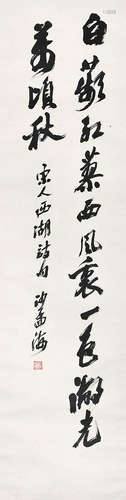 白蘋红蓼西风裏一色湖光
萬頃秋
宋人西湖詩句 沙孟海